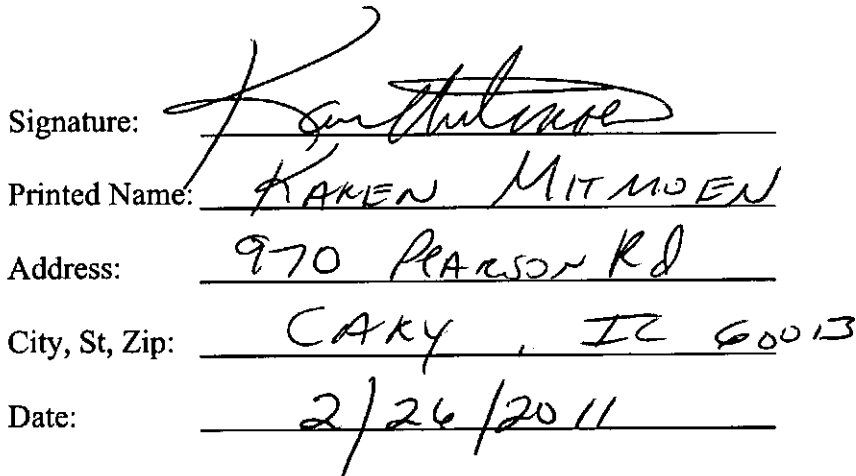 Signature:
Printed Name: KAREN MITMOEN
Address: 970 PEARSON Rd
City, St, Zip: CARY, IL 60013
Date: 2/26/2011